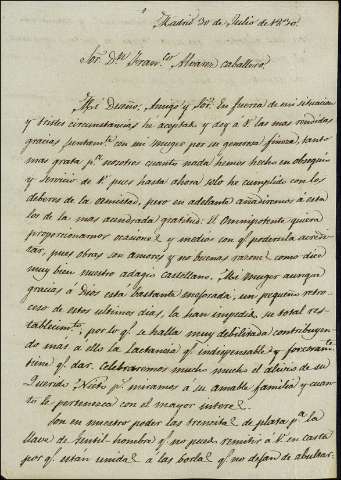 Madrid 30 de Julio de 1830.
Sor. Dn. Fran.co Alvarez caballero.
Mi Dueño, Amigo y Sor. En fuerza de mi situacion
y tristes circunstancias he aceptado y doy á V. las mas rendidas
gracias juntam.te con mi muger por su generosa fineza, tanto
mas grata p.a nosotros cuanto nada hemos hecho en obsequio
y servicio de V. pues hasta ahora solo he cumplido con los
deberes de la amistad, pero en adelante añadiremos á es-
tos los de la mas acendrada gratitud. El Omnipotente quiera
proporcionarnos ocasiones y medios con q.e podersela acredi-
tar, pues obras son amores y no buenas razones como dice
muy bien nuestro adagio Castellano. Mi Muger aunque
gracias á Dios está bastante mejorada, un pequeño retro-
ceso de estos ultimos dias, la han impedido su total res-
tablecim.to, por lo q.e se halla muy debilitada contribuyen-
do mas á ello la lactancia q.e indispensable y forzosam.te
tiene q.e dar. Celebraremos mucho mucho el alivio de su
Querido Nieto p.s miramos á su amable familia y cuan-
to le pertenezca con el mayor interes.
Son en nuestro poder las trencitas de plata p.a la
llave de Gentil hombre q.e no puedo remitir á V. en carta
por q.e están unidas á las borlas q.e no dejan de abultar.